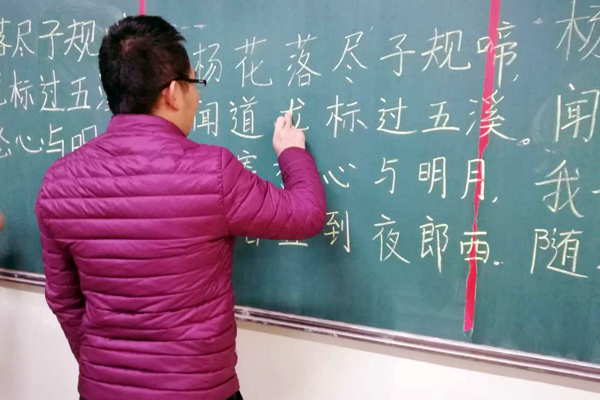 落尽子规
标过五
心与明
杨花落尽子规啼，
闻道龙标过五溪。
心与明月，
直到夜郎西.
杨
闻
我
随